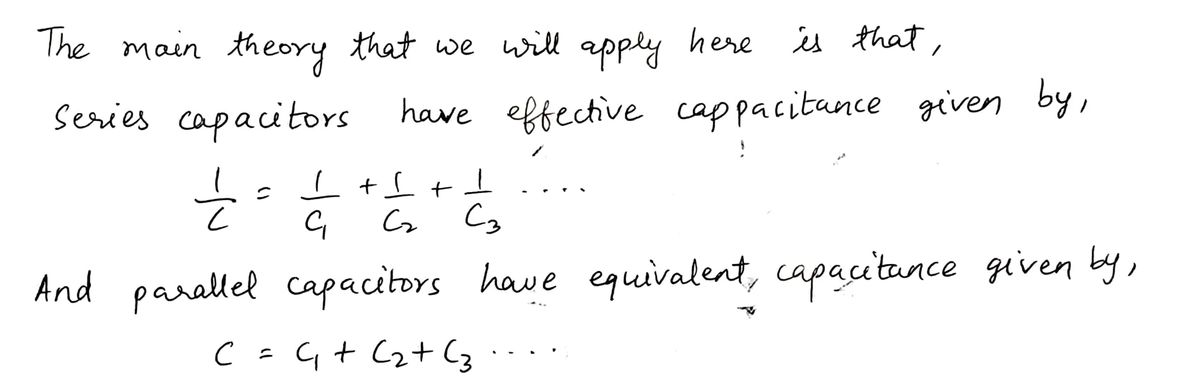 The main theory that we will apply here is that,
Series capacitors have effective cappacitance given by,
1/C = 1/C₁ + 1/C₂ + 1/C₃ ....
And parallel capacitors have equivalent, capacitance given by,
C = C₁ + C₂ + C₃ ....